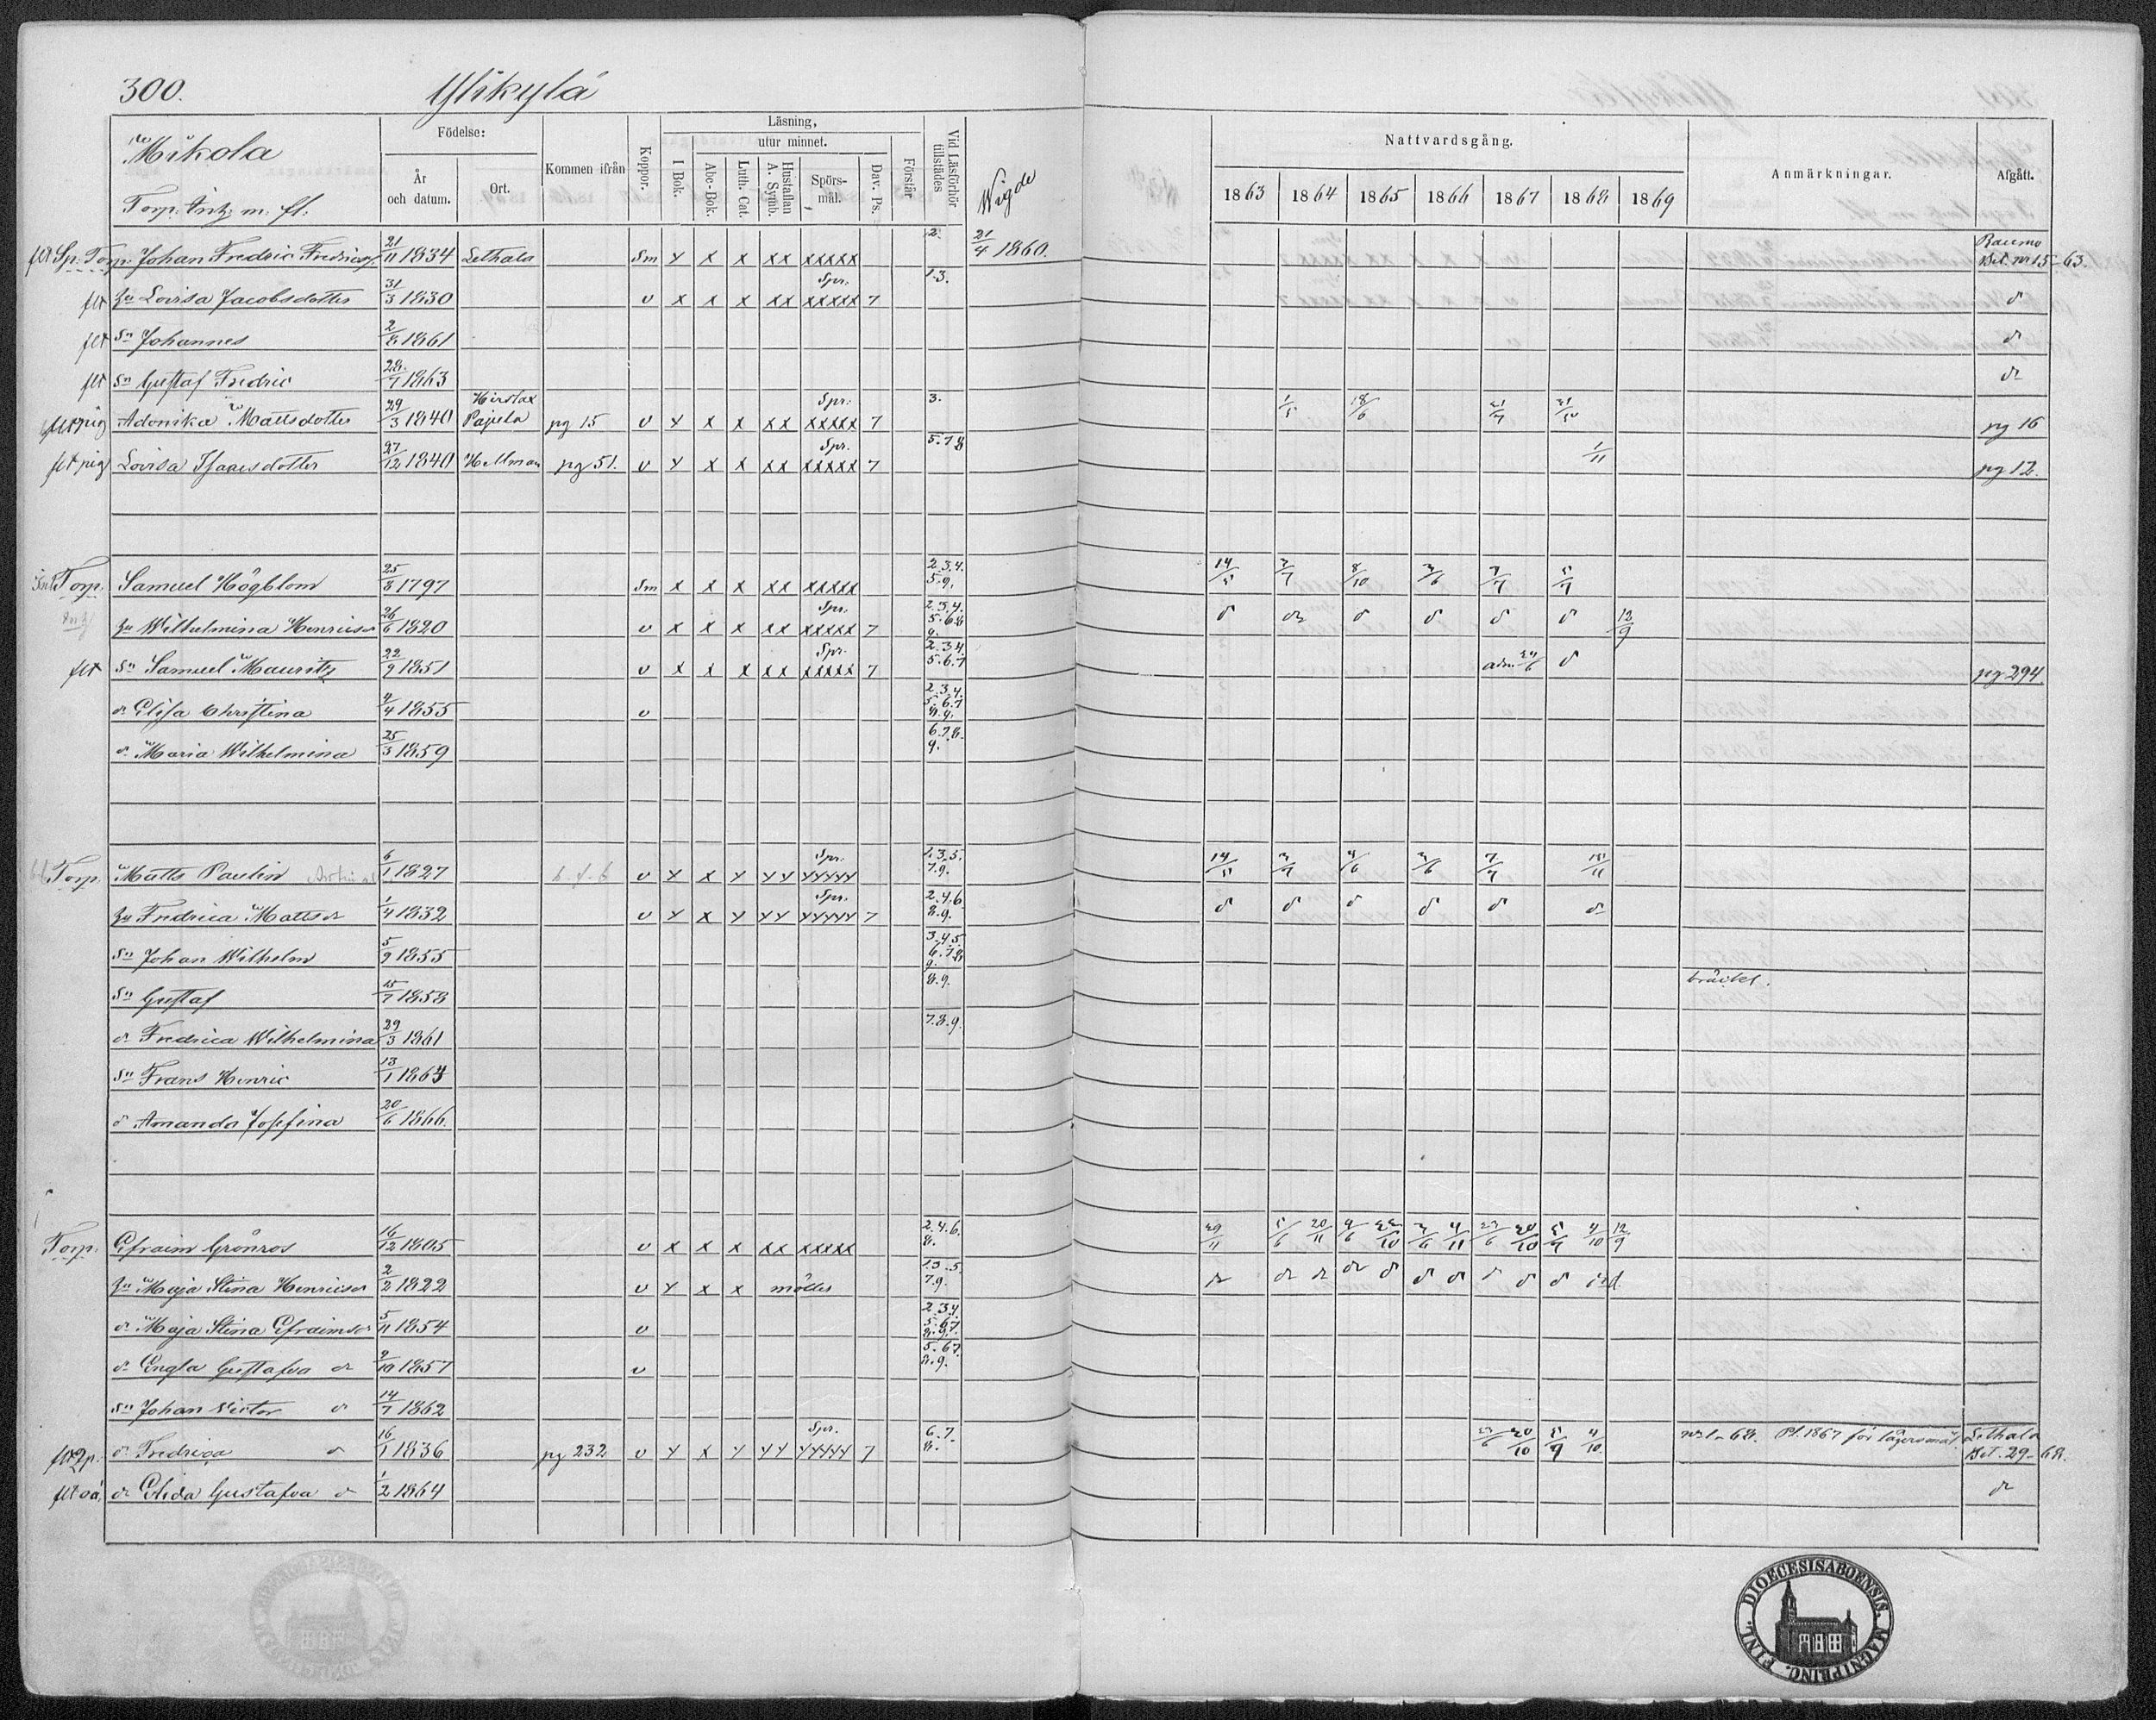 300. Ylikylä
Mikola
Torp. Inh: m. fl.
Födelse:
År och datum.
Ort.
Kommen ifrån
Koppor.
Läsning,
I Bok.
utur minnet.
Abc-Bok.
Luth. Cat.
Hustaflan A. Symb.
Spörsmål.
Dav. Ps.
Förstår
Vid Läsförhör tillstädes
Wigde
Nattvardsgång.
1863 1864 1865 1866 1867 1868 1869
Anmärkningar.
Afgått.
flt Sp. Torp. Johan Fredric Fredricss. 21/11 1834 Lethala Sm y x x xx xxxxx 2. 21/4 1860. Raumo Bet. nr 15-63.
flt hu Lovisa Jacobsdotter 31/3 1830 v x x x xx Spr. xxxxx 7 1.3. d
flt Sn Johannes 2/8 1861 d
flt Sn Gustaf Fredric 28/7 1863 d
flt pig Adonika Mattsdotter 29/3 1840 Pajula pg 15 v y x x xx Spr. xxxxx 7 3. 1/5 18/6 pg 16
flt pig Lovisa Isaacsdotter 27/12 1840 Hellman pg 51. v y x x xx Spr. xxxxx 7 5.7 8 1/11 pg 12.
Torp. Samuel Högblom 25/8 1797 Sm x x x xx xxxxx 2.3.4. 5.9. 14/5 8/10
hu Wilhelmina Henricsdr 26/6 1820 v x x x xx Spr. xxxxx 7 2.3.4. 5.6.8 9. d d d d d d 12/9
flt Sn Samuel Mauritz 22/9 1851 v x x x xx Spr. xxxxx 7 2.3.4. 5.6.7 adm 24/6 d pg 294
dr Elisa Christina 4/4 1855 v 2.3.4. 5.6.7 8.9.
dr Maria Wilhelmina 25/3 1859 6.7.8. 9.
Torp. Matts Paulin 6/1 1827 v y x y yy Spr. yyyyy 1.3.5. 7.9. 14/5
hu Fredrica Mattsdr 1/4 1832 v y x y yy Spr. yyyyy 7 2.4.6 8.9. d d d d d d
Sn Johan Wilhelm 5/9 1855 3.4.5. 6.7.8 9.
Sn Gustaf 15/7 1858 8.9. bräckt.
dr Fredrica Wilhelmina 29/3 1861 7.8.9.
Sn Frans Henric 13/1 1864
d Amanda Josefina 20/6 1866.
Torp. Efraim Grönros 16/12 1805 v x x x xx xxxxx 2.4.6. 8. 29/11 20/11 12/9
hu Maja Stina Henricsdr 2/2 1822 v y x x 1.3.5. 7.9. d d d d d d d d d d
dr Maja Stina Efraimsdr 5/11 1854 v 2.3.4 5.6.7. 8.9.
dr Engla Gustafva dr 2/10 1857 v 5.6.7. 8.9.
Sn Johan Victor d 14/7 1862
flt 2 p. dr Fredrica d 16/1 1836 pg 232 v y x y yy Spr. yyyyy 7 6.7. 8. 23/6 20/10 5/7 4/10 68. Pl. 1867 för lägersmål. Lethala Bet. 29-68.
flt oä. dr Elida Gustafva d 1/2 1864 d
FINL. DIOECESIS ABOENSIS. MAGNI PRINC.